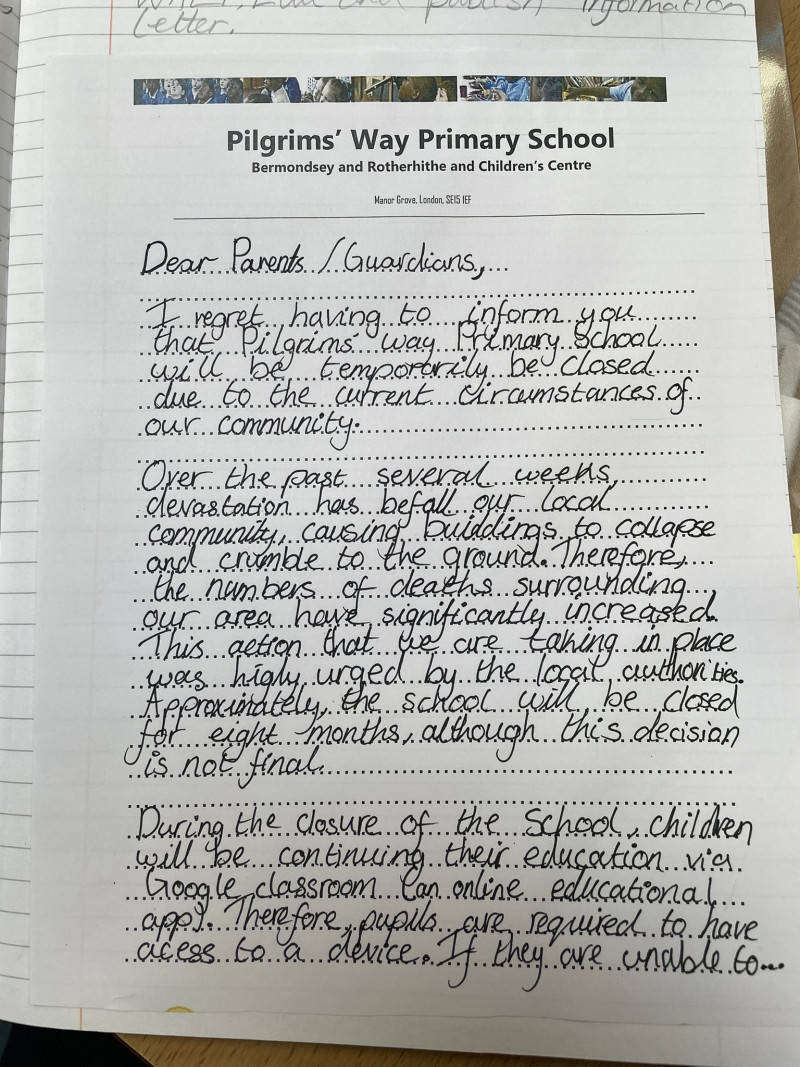 WALT: Edit and publish information
letter.
Pilgrims' Way Primary School
Bermondsey and Rotherhithe and Children's Centre
Manor Grove, London, SE15 1EF
Dear Parents / Guardians,
I regret having to inform you
that Pilgrims' way Primary School
will be temporarily be closed
due to the current circumstances of
our community.
Over the past several weeks,
devastation has befall our local
community, causing buildings to collapse
and crumble to the ground. Therefore,
the numbers of deaths surrounding
our area have significantly increased.
This action that we are taking in place
was higly urged by the local authorities.
Approximately, the school will be closed
for eight months, although this decision
is not final.
During the closure of the School, children
will be continuing their education via
Google classroom (an online educational
app). Therefore, pupils are required to have
acess to a device. If they are unable to...